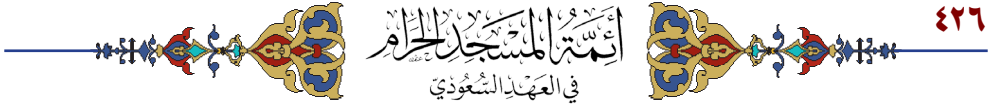 ٤٢٦
أَئِمَّةُ المَسْجِدِ الحَرَامِ
فِي العَهْدِ السُّعُودِيّ